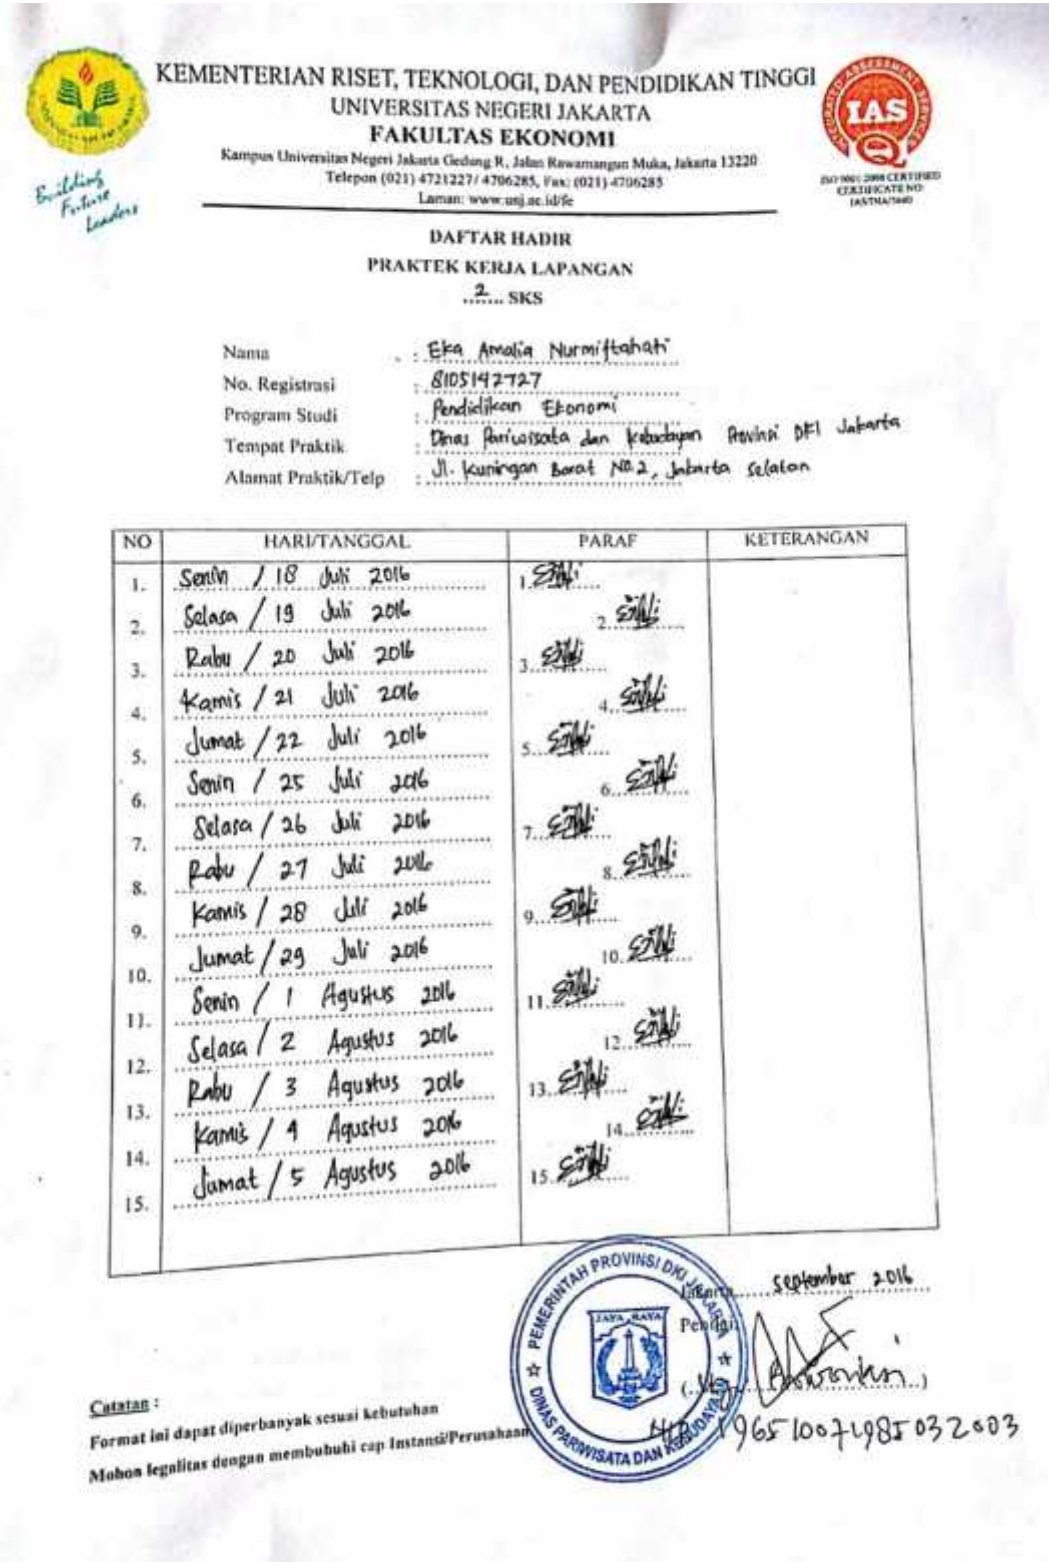 KEMENTERIAN RISET, TEKNOLOGI, DAN PENDIDIKAN TINGGI
UNIVERSITAS NEGERI JAKARTA
FAKULTAS EKONOMI
Kampus Universitas Negeri Jakarta Gedung R, Jalan Rawamangun Muka, Jakarta 13220
Telepon (021) 4721227/ 4706285, Fax: (021) 4706285
Laman: www.unj.ac.id/fe
Building
Future
Leaders
IAS
ISO 9001:2008 CERTIFIED
CERTIFICATE NO
DAFTAR HADIR
PRAKTEK KERJA LAPANGAN
..2.... SKS
Nama : Eka Amalia Nurmiftahati
No. Registrasi : 8105142727
Program Studi : Pendidikan Ekonomi
Tempat Praktik : Dinas Pariwisata dan Kebudayaan Provinsi DKI Jakarta
Alamat Praktik/Telp : Jl. Kuningan Barat No.2, Jakarta Selatan
NO HARI/TANGGAL PARAF KETERANGAN
1. Senin / 18 Juli 2016 1.
2. Selasa / 19 Juli 2016 2.
3. Rabu / 20 Juli 2016 3.
4. Kamis / 21 Juli 2016 4.
5. Jumat / 22 Juli 2016 5.
6. Senin / 25 Juli 2016 6.
7. Selasa / 26 Juli 2016 7.
8. Rabu / 27 Juli 2016 8.
9. Kamis / 28 Juli 2016 9.
10. Jumat / 29 Juli 2016 10.
11. Senin / 1 Agustus 2016 11.
12. Selasa / 2 Agustus 2016 12.
13. Rabu / 3 Agustus 2016 13.
14. Kamis / 4 Agustus 2016 14.
15. Jumat / 5 Agustus 2016 15.
Jakarta, September 2016
PEMERINTAH PROVINSI DKI JAKARTA
JAYA RAYA
DINAS PARIWISATA DAN KEBUDAYAAN
NIP. 196510071985032003
Catatan :
Format ini dapat diperbanyak sesuai kebutuhan
Mohon legalitas dengan membubuhi cap Instansi/Perusahaan